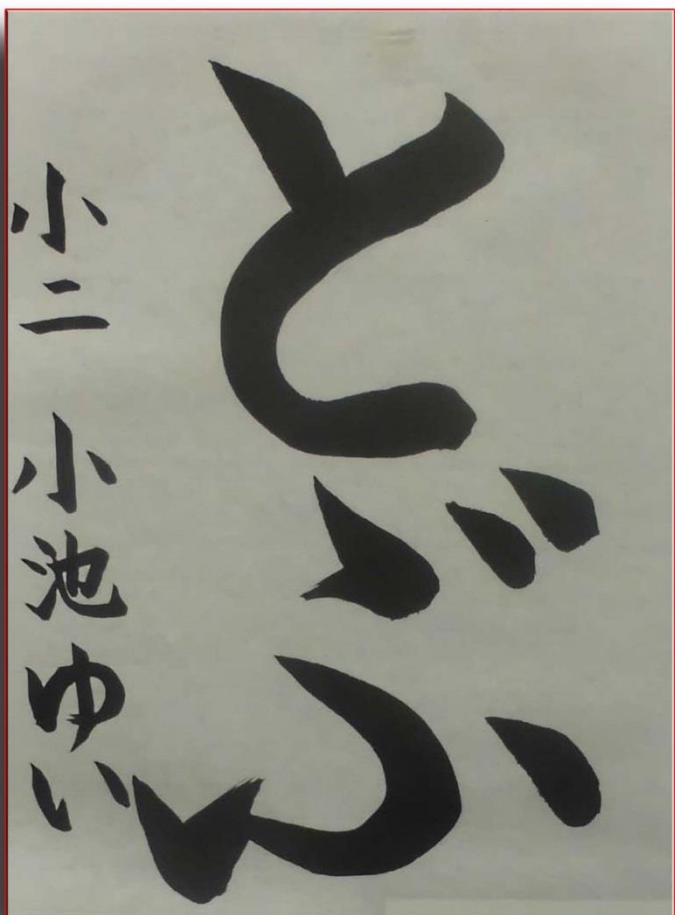 とぶ
小二 小池ゆい